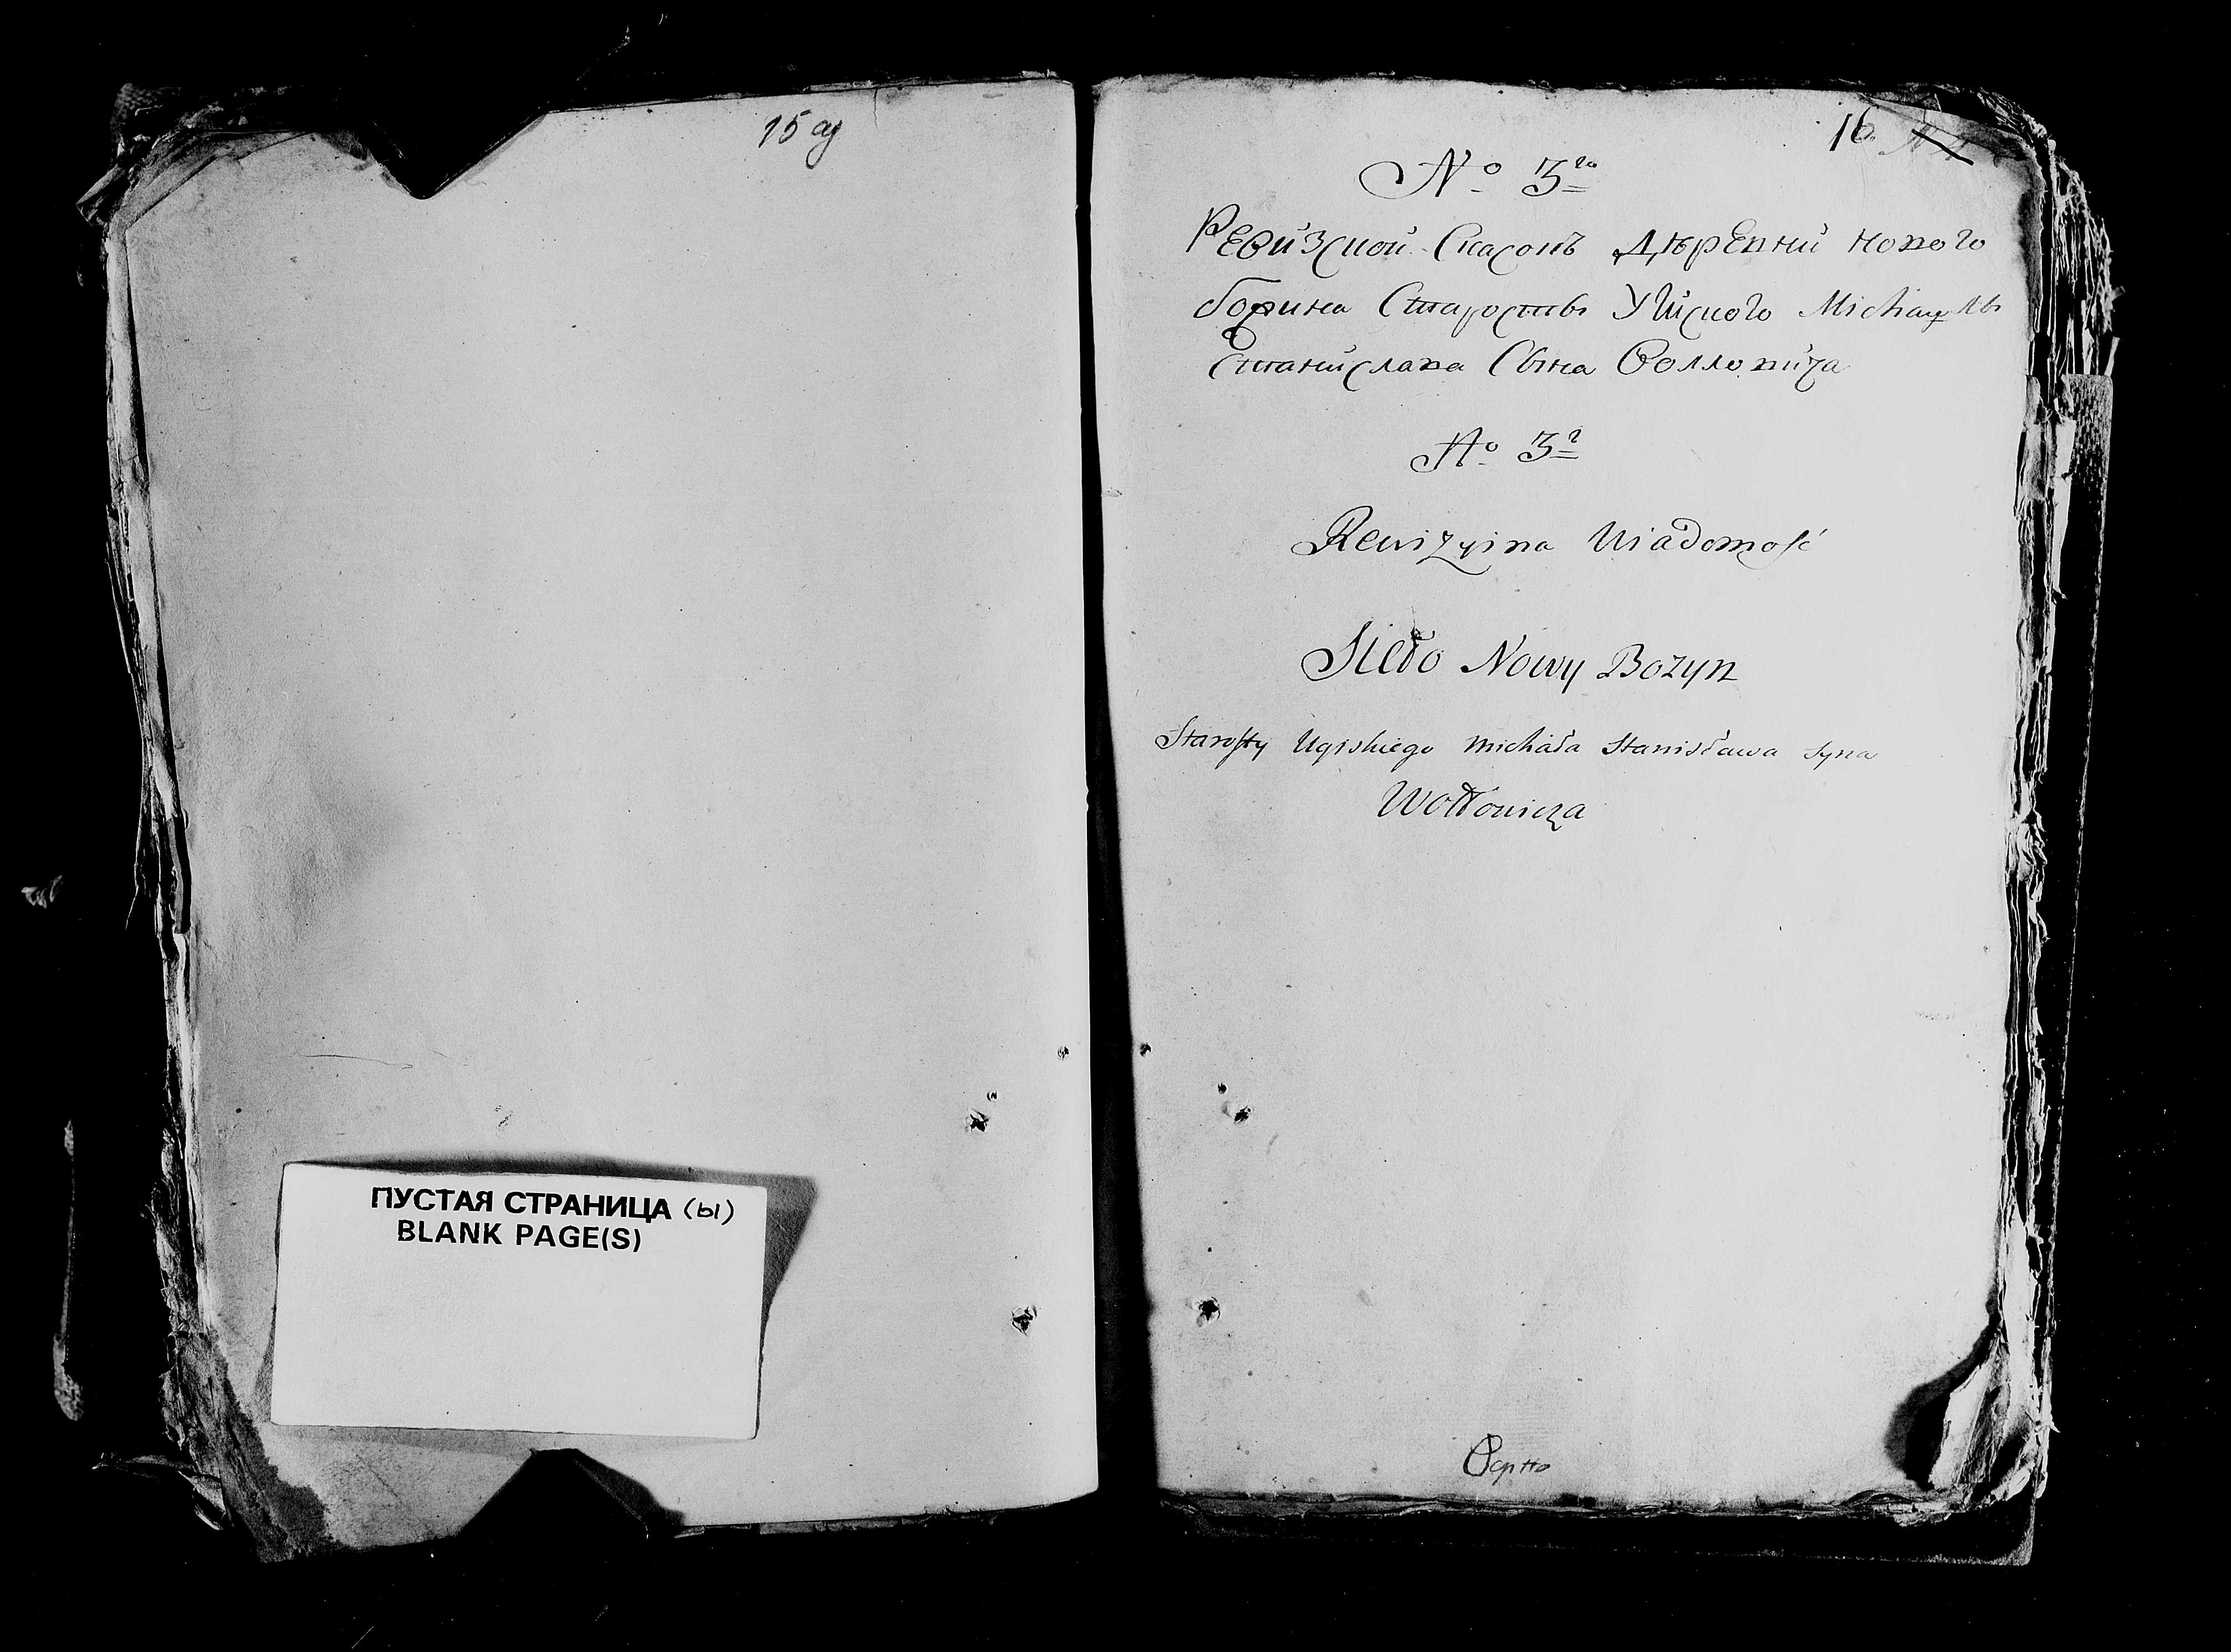 15 об
ПУСТАЯ СТРАНИЦА (ы)
BLANK PAGE(S)
16
№ 3го
Ревизской Сказокъ Дѣревни Нового
Старосты Уйского
Станислава Сына Волловича
№ 3o
Rewizyina Wiadomość
Sieło Nowy Bozyn
Starosty Ugiskiego Michała Stanisława Syna
Wołłowicza